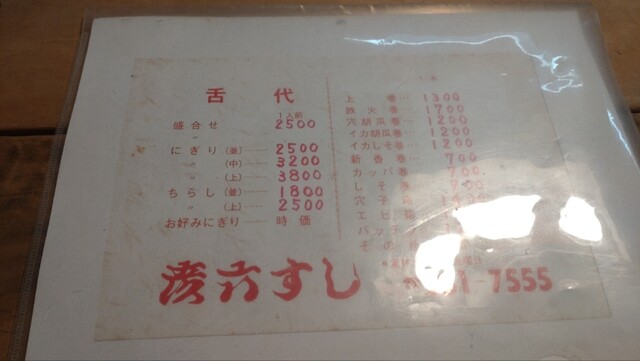 舌代
1人前
盛合せ 〃 2500
にぎり(並)── 2500
〃(中)── 3200
〃(上)── 3800
ちらし(並)── 1800
〃(上)── 2500
お好みにぎり── 時価
1本
上巻… 1300
鉄火巻… 1700
穴胡瓜巻… 1200
イカ胡瓜巻… 1200
イカしそ巻… 1200
新香巻… 700
カッパ巻… 700
しそ巻… 700
穴子
エビ
バッテ
その他
六すし
1-7555